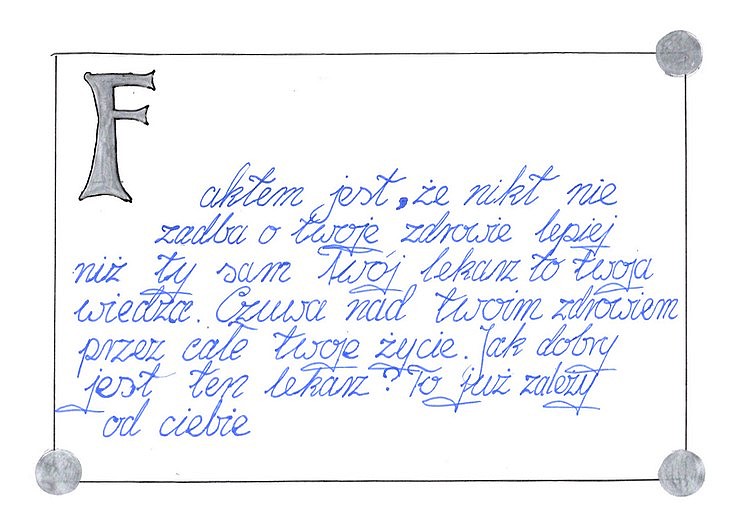 Faktem jest, że nikt nie
zadba o twoje zdrowie lepiej
niż ty sam Twój lekarz to twoja
wiedza. Czuwa nad twoim zdrowiem
przez całe twoje życie. Jak dobry
jest ten lekarz? To już zależy
od ciebie